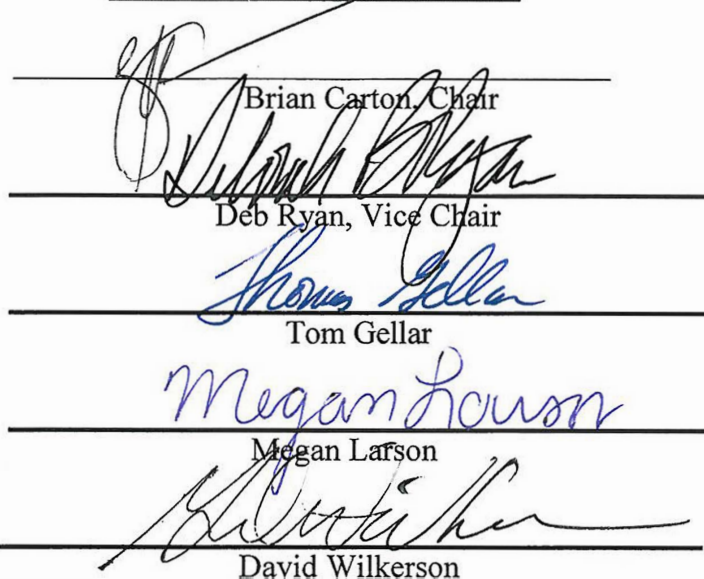 Brian Carton, Chair
Deborah B Ryan
Deb Ryan, Vice Chair
Thomas Gellar
Tom Gellar
Megan Larson
Megan Larson
David Wilkerson